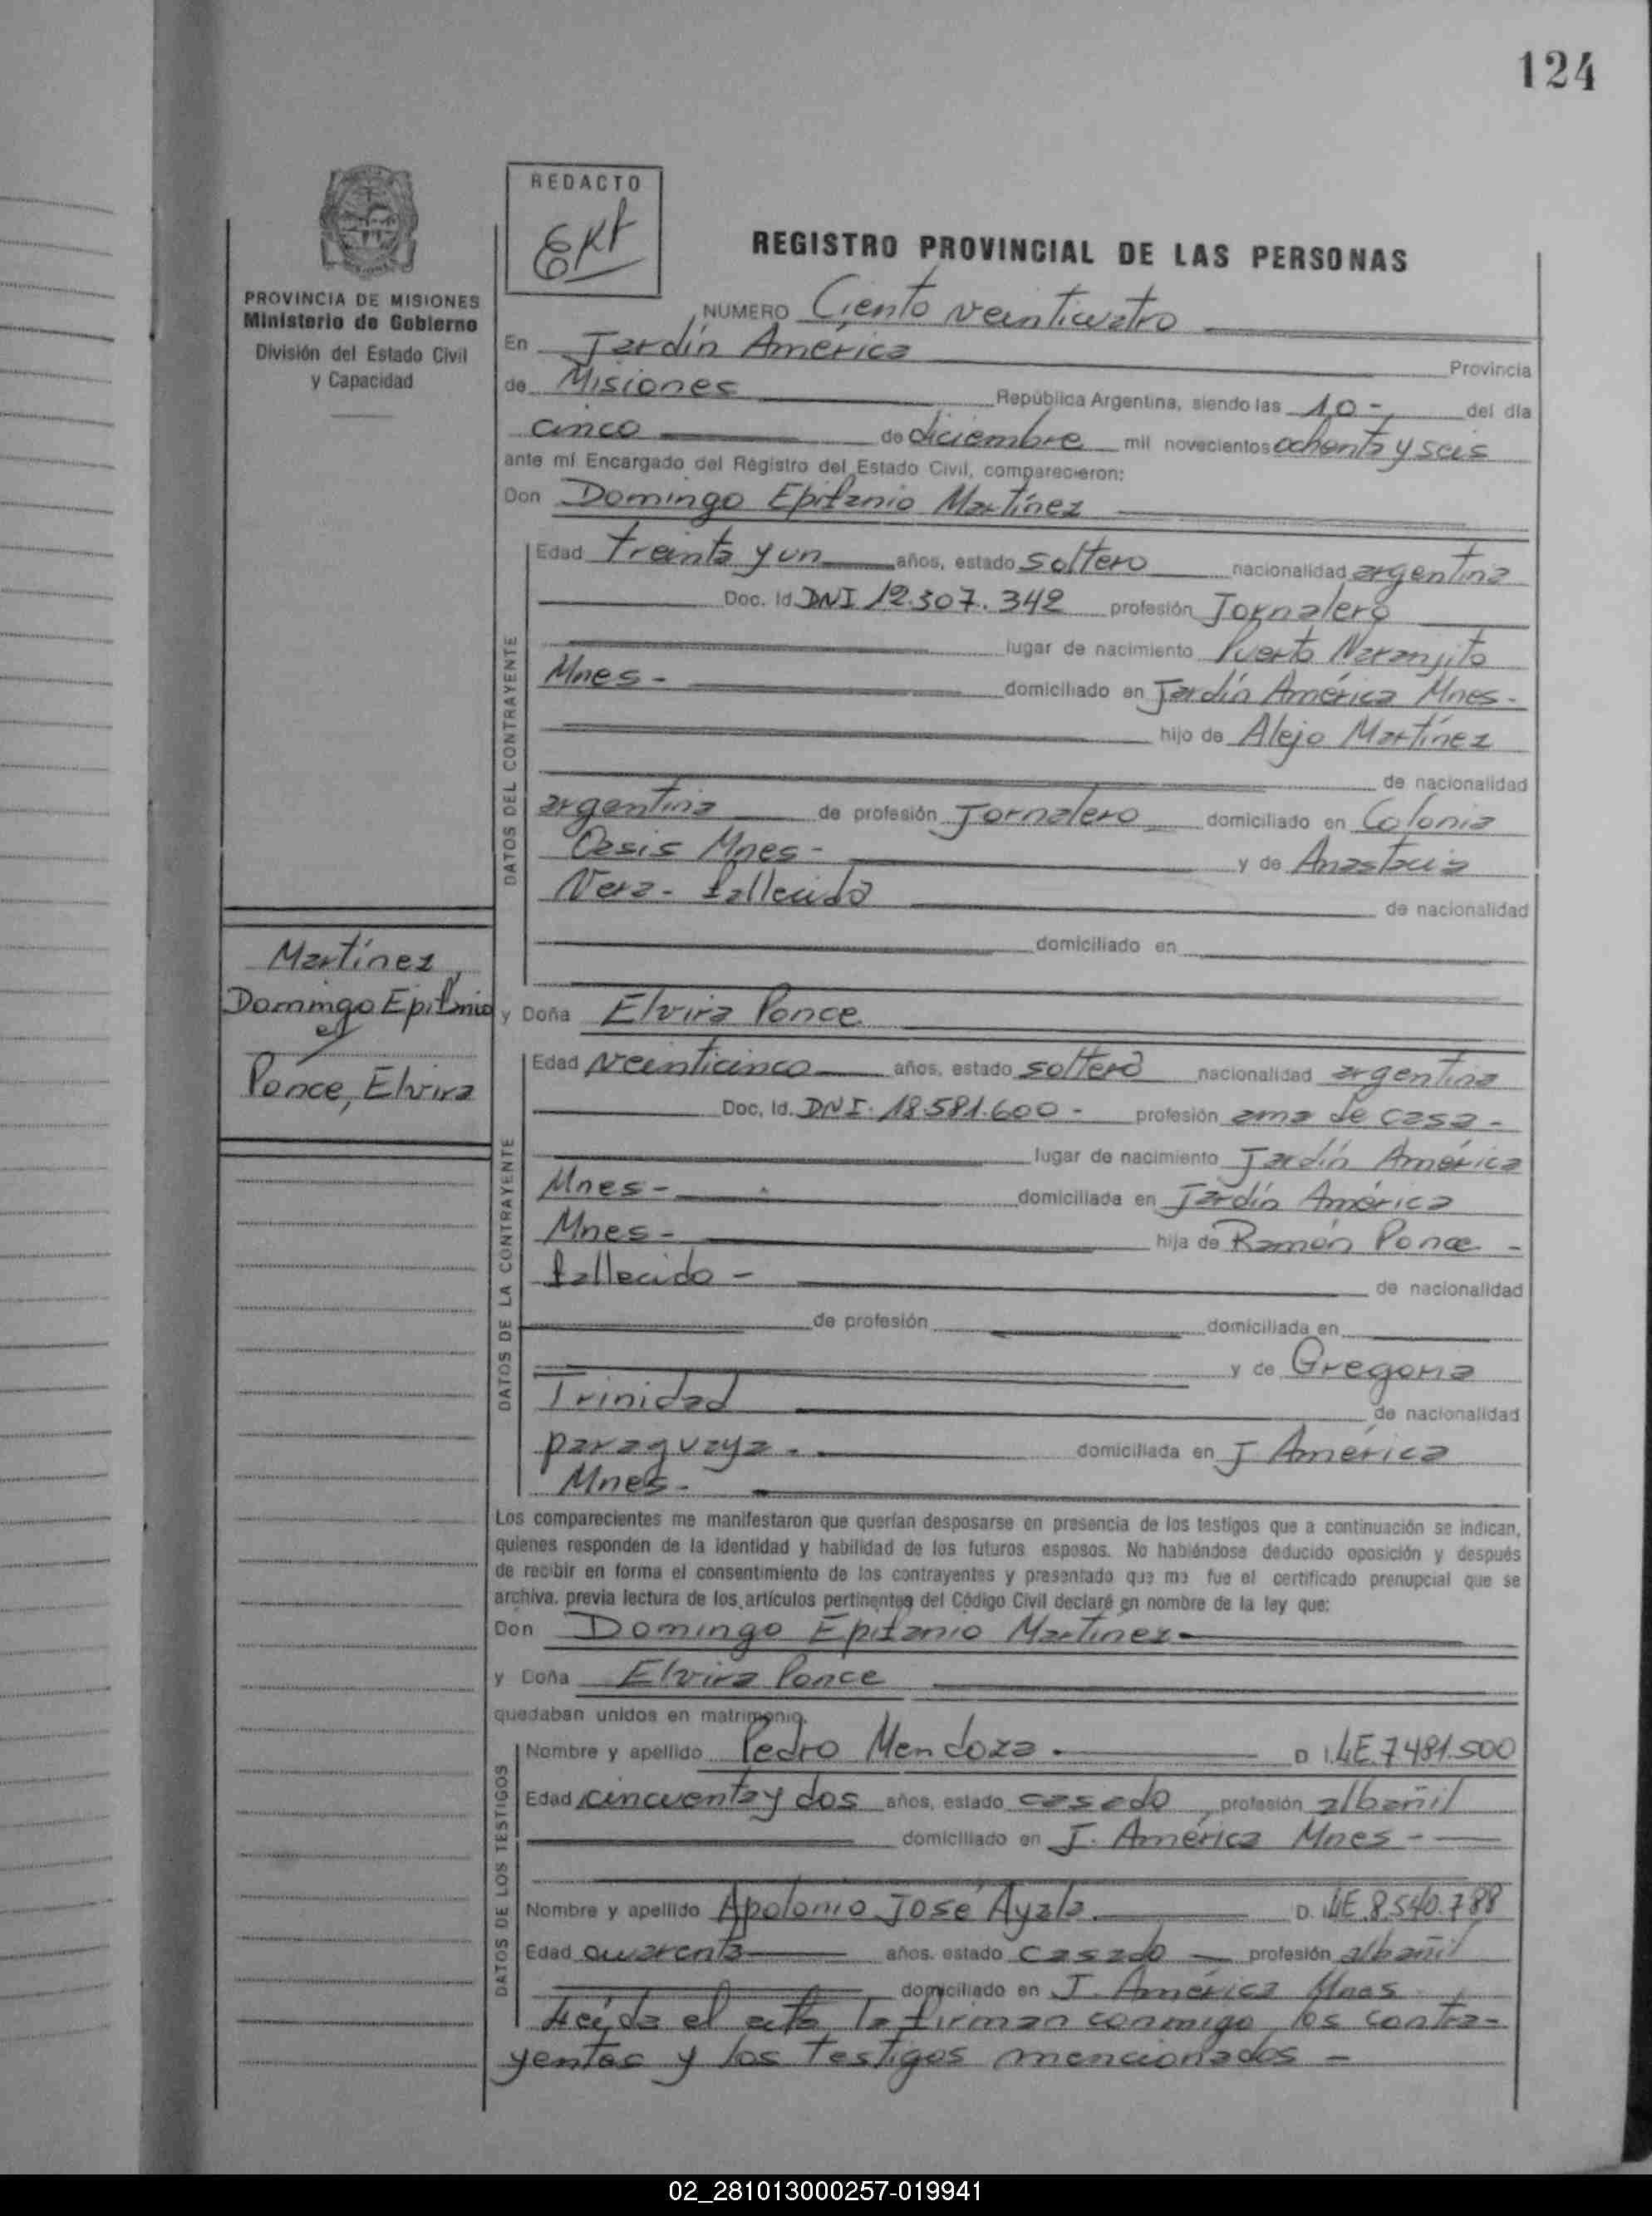 124
REDACTO
REGISTRO PROVINCIAL DE LAS PERSONAS
PROVINCIA DE MISIONES
Ministerio de Gobierno
División del Estado Civil
y Capacidad
NUMERO Ciento veinticuatro
En Jardín América Provincia
de Misiones República Argentina, siendo las 10- del día
cinco de diciembre mil novecientos ochenta y seis
ante mí Encargado del Registro del Estado Civil, comparecieron:
Don Domingo Epifanio Martínez
DATOS DEL CONTRAYENTE
Edad treinta y un años, estado soltero nacionalidad argentina
Doc. Id. DNI 12.307.342 profesión Jornalero
lugar de nacimiento Puerto Naranjito
Mnes- domiciliado en Jardín América Mnes-
hijo de Alejo Martínez
de nacionalidad
argentina de profesión Jornalero domiciliado en Colonia
Oasis Mnes- y de Anastacia
Vera- fallecida de nacionalidad
domiciliado en
Martínez,
Domingo Epifanio
y
Ponce, Elvira
y Doña Elvira Ponce
DATOS DE LA CONTRAYENTE
Edad veinticinco años, estado soltera nacionalidad argentina
Doc. Id. DNI. 18.581.600- profesión ama de casa-
lugar de nacimiento Jardín América
Mnes- domiciliada en Jardín América
Mnes- hija de Ramón Ponce -
fallecido- de nacionalidad
de profesión domiciliada en
y de Gregoria
Trinidad de nacionalidad
paraguaya- domiciliada en J. América
Mnes-
Los comparecientes me manifestaron que querían desposarse en presencia de los testigos que a continuación se indican,
quienes responden de la identidad y habilidad de los futuros esposos. No habiéndose deducido oposición y después
de recibir en forma el consentimiento de los contrayentes y presentado que me fue el certificado prenupcial que se
archiva, previa lectura de los artículos pertinentes del Código Civil declaré en nombre de la ley que:
Don Domingo Epifanio Martínez
y Doña Elvira Ponce
quedaban unidos en matrimonio.
DATOS DE LOS TESTIGOS
Nombre y apellido Pedro Mendoza D.I. LE.7481.500
Edad cincuenta y dos años, estado casado profesión albañil
domiciliado en J. América Mnes-
Nombre y apellido Apolonio José Ayala D. LE.8.540.788
Edad cuarenta años. estado casado profesión albañil
domiciliado en J. América Mnes
Leída el acta la firman conmigo los contra-
yentes y los testigos mencionados -
02_281013000257-019941